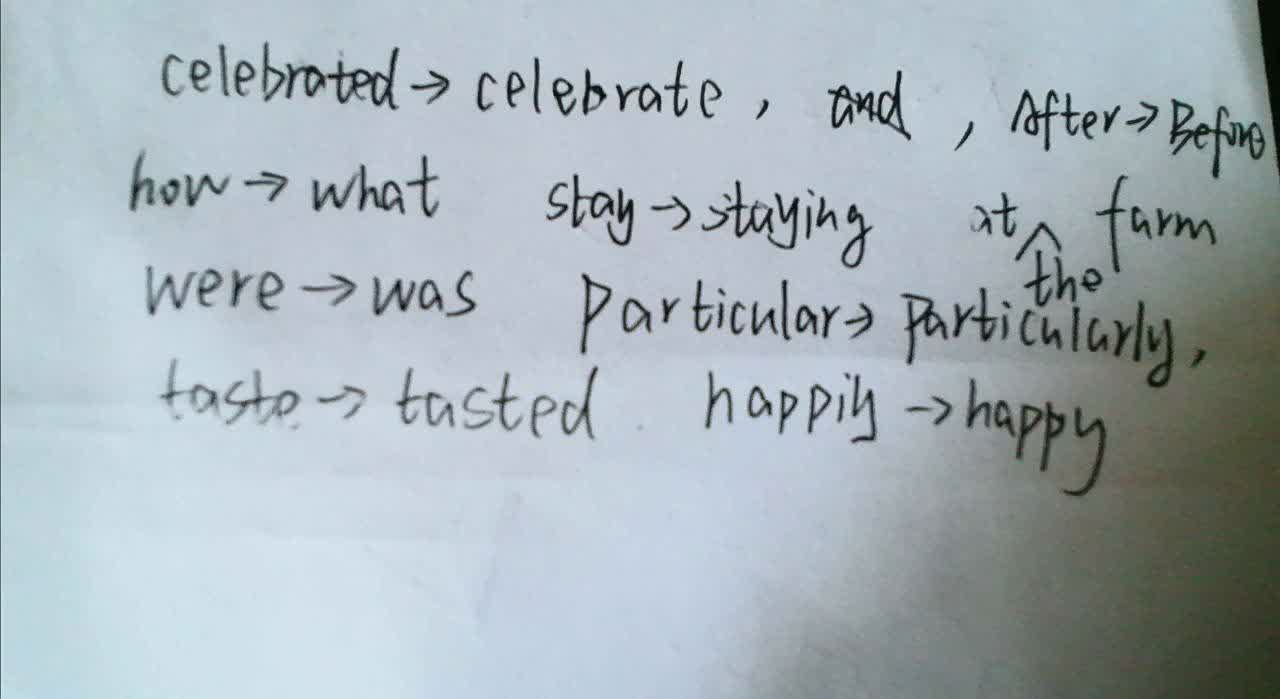 celebrated → celebrate, and, After → Before
how → what stay → staying at ^ farm
the
were → was Particular → particularly,
taste → tasted happily → happy